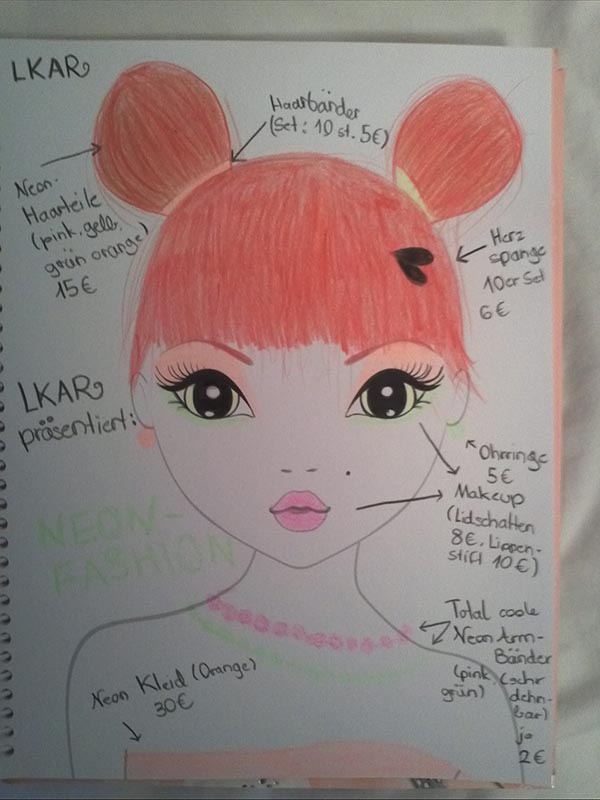 LKAR
Haarbänder
(Set: 10 st. 5€)
Neon-
Haarteile
(pink, gelb,
grün orange)
15€
Herz
spange
10er Set
6€
LKAR
präsentiert:
Ohrringe
5€
Makeup
(Lidschatten
8€, Lippen-
stift 10€)
NEON-
FASHION
Total coole
Neon Arm-
Bänder
(pink,
grün)
(sehr
dehn-
bar)
je
2€
Neon Kleid (Orange)
30€